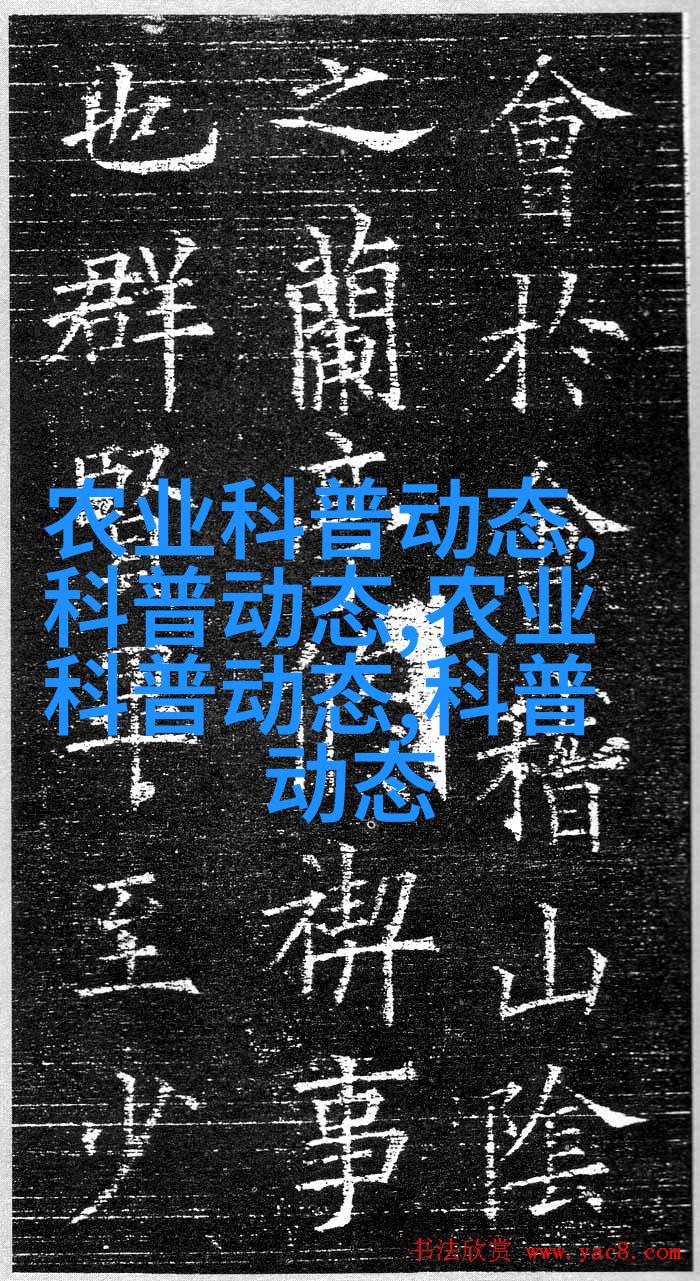 會於會稽山陰
之蘭亭禊事
也群賢畢至少
农业科普动态,
科普动态,农业
科普动态,科普
动态
书法欣赏 www.yac8.com